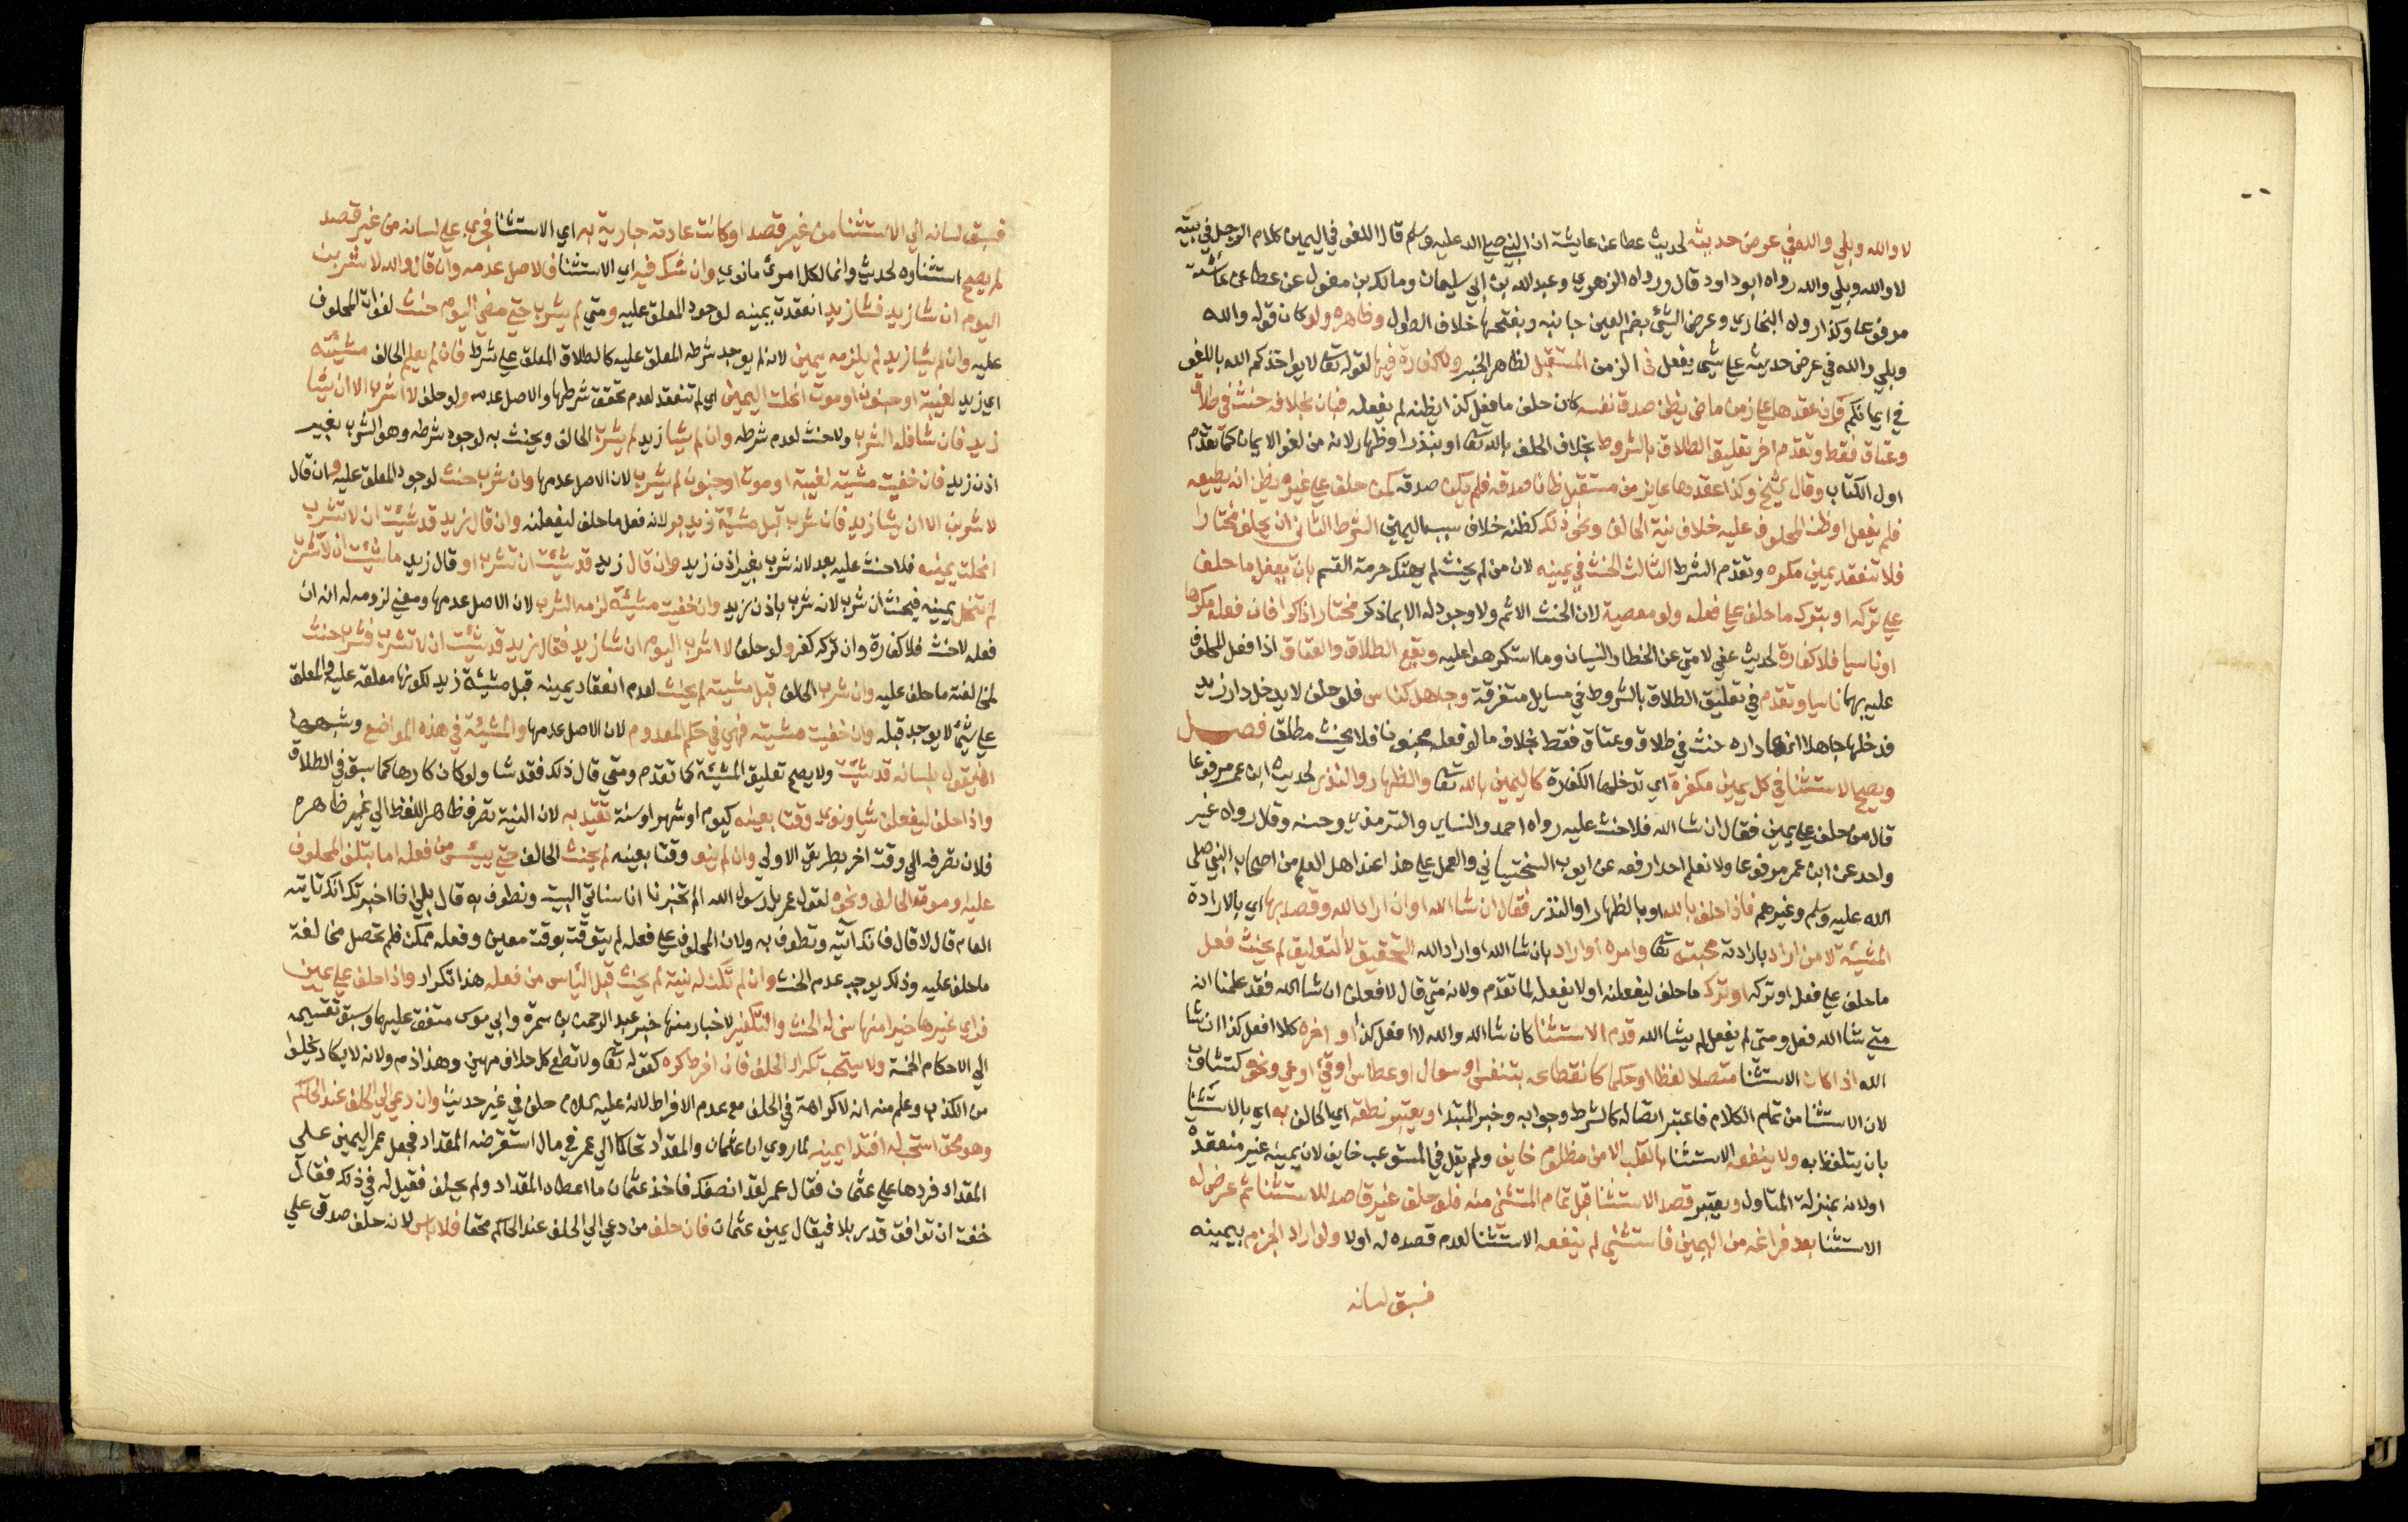 لا والله وبلي والله في عرض حديثه لحديث عطا عن عايشة ان النبي صلي الله عليه وسلم قال اللغو في اليمين كلام الرجل في بيته
لا والله وبلي والله رواه ابو داود قال ورواه الزهري وعبد الله بن ابي سليمان ومالك بن مغول عن عطا عن عائشة
مرفوعا وكذا رواه البخاري وعرض الشي بضم العين جانبه وبفتحها خلاف الطول وظاهره ولو كان قوله والله
وبلي والله في عرض حديثه علي شي يفعل في الزمن المستقبل لظاهر الخبر ولا كفارة فيها لقوله تعالى لا يواخذكم الله باللغو
في ايمانكم وان عقدها علي زمن ماض يظن صدق نفسه كان حلف ما فعل كذا يظنه لم يفعله فبان بخلافه حنث في طلاق
وعتاق فقط وتقدم اخر تعليق الطلاق بالشروط بخلاف الحلف بالله تعالى او بنذر او ظهار لانه من لغو الايمان كما تقدم
اول الكتاب وقال الشيخ وكذا عقدها علي زمن مستقبل ظانا صدقه فلم يكن صدقه كمن حلف علي غيره يظن انه يطيعه
فلم يفعل او ظن المحلوف عليه خلاف نية الحالف ونحو ذلك كظنه خلاف سبب اليمين الشرط الثاني ان يحلف مختارا
فلا تنعقد يمين مكره وتقدم الشرط الثالث الحنث في يمينه لان من لم يحنث لم يهتك حرمة القسم بان يفعل ما حلف
علي تركه او بترك ما حلف علي فعله ولو معصية لان الحنث الاثم ولا وجود له الا بما ذكر مختارا ذاكرا فان فعله مكرها
او ناسيا فلا كفارة لحديث عفي لامتي عن الخطا والنسيان وما استكرهوا عليه ويقع الطلاق والعتاق اذا فعل المحلوف
عليه بهما ناسيا وتقدم في تعليق الطلاق بالشروط في مسايل متفرقة وجاهل كناس فلو حلف لا يدخل دار زيد
فدخلها جاهلا انها داره حنث في طلاق وعتاق فقط بخلاف ما لو فعله مجنونا فلا يحنث مطلقا فصل
ويصح الاستثنا في كل يمين مكفرة اي تدخلها الكفارة كاليمين بالله تعالى والظهار والنذر لحديث ابن عمر مرفوعا
قال من حلف علي يمين فقال ان شا الله فلا حنث عليه رواه احمد والنساي والترمذي وحسنه وقال رواه غير
واحد عن ابن عمر مرفوعا ولا نعلم احدا رفعه عن ايوب السختياني والعمل علي هذا عند اهل العلم من اصحاب النبي صلى
الله عليه وسلم وغيرهم فاذا حلف بالله او بالظهار او النذر فقال ان شا الله او ان اراد الله وقصد بها اي بالارادة
المشيئة لا من اراد بارادته محبته تعالى وامره او اراد بان شا الله او اراد الله التحقيق لا التعليق لم يحنث فعل
ما حلف علي فعله او تركه او ترك ما حلف ليفعلنه او لا يفعله لما تقدم ولانه متي قال لافعلن ان شا الله فقد علمنا انه
متي شا الله فعل ومتي لم يفعل لم يشا الله قدم الاستثنا كان شا الله والله لا افعل كذا او اخره كلا افعل كذا ان شا
الله اذا كان الاستثنا متصلا لفظا او حكما كانقطاعه بتنفس او سعال او عطاس او قيء او عي ونحوه كتثاوب
لان الاستثنا من تمام الكلام فاعتبر اتصاله كالشرط وجوابه وخبر المبتدا ويعتبر نطقه اي الحالف به اي بالاستثنا
بان يتلفظ به ولا ينفعه الاستثنا بالقلب الا من مظلوم خايف ولم يقل في المستوعب خايف لان يمينه غير منعقدة
او لانه بمنزلة المتاول ويعتبر قصد الاستثنا قبل تمام المستثنى منه فلو حلف غير قاصد للاستثنا ثم عرض له
الاستثنا بعد فراغه من اليمين فاستثنى لم ينفعه الاستثنا لعدم قصده له اولا ولو اراد الجزم بيمينه
فسبق لسانه
فسبق لسانه الي الاستثنا من غير قصد او كانت عادته جارية به اي الاستثنا فجرى علي لسانه من غير قصد
لم يصح استثناوه لحديث وانما لكل امرئ ما نوي وان شك فيه اي الاستثنا فالاصل عدمه وان قال والله لاشربن
اليوم ان شا زيد فشا زيد انعقدت يمينه لوجود المعلق عليه ومتي لم يشرب حتي مضى اليوم حنث لفوات المحلوف
عليه وان لم يشا زيد لم يلزمه يمين لانه لم يوجد شرطه المعلق عليه كالطلاق المعلق علي شرط فان لم يعلم الحالف مشيئته
اي زيد لغيبة او جنون او موت انحلت اليمين اي لم تنعقد لعدم تحقق شرطها والاصل عدمه ولو حلف لا اشرب الا ان يشا
زيد فان شا فله الشرب ولا حنث لعدم شرطه وان لم يشا زيد لم يشرب الحالف ويحنث به لوجود شرطه وهو الشرب بغير
اذن زيد فان خفيت مشيته لغيبة او موت او جنون لم يشرب لان الاصل عدمها وان شرب حنث لوجود المعلق عليه وان قال
لاشربن الا ان يشا زيد فان شرب قبل مشيئة زيد بر لانه فعل ما حلف ليفعلنه وان قال زيد قد شئت ان لا تشرب
انحلت يمينه فلا حنث عليه بعد لانه شرب بغير اذن زيد وان قال زيد قد شئت ان تشرب او قال زيد ما شئت ان لا تشرب
لم تنحل يمينه فيحنث ان شرب لانه شرب باذن زيد وان خفيت مشيئته لزمه الشرب لان الاصل عدمها ومعني لزومه له انه ان
فعله لا حنث فلا كفارة وان تركه كفر ولو حلف لا اشرب اليوم ان شا زيد فقال زيد قد شئت ان لا تشرب فشرب حنث
لمخالفته ما حلف عليه وان شرب الحالف قبل مشيته لم يحنث لعدم انعقاد يمينه قبل مشيئة زيد لكونها معلقة عليه والمعلق
علي شي لا يوجد قبله وان خفيت مشيته فهي في حكم المعدوم لان الاصل عدمها والمشيئة في هذه المواضع وشبهها
ان يقول بلسانه قد شئت ولا يصح تعليق المشيئة كما تقدم ومتي قال ذلك فقد شا ولو كان كارها كما سبق في الطلاق
واذا حلف ليفعلن شيا ونوي وقتا بعينه كيوم او شهر او سنة تقيد به لان النية تصرف ظاهر اللفظ الي غير ظاهره
فلان تصرفه الي وقت اخر بطريق الاولي وان لم ينو وقتا بعينه لم يحنث الحالف حتي ييئس من فعله اما بتلف المحلوف
عليه او موت الحالف ونحوه لقول عمر يا رسول الله الم تخبرنا انا سناتي البيت ونطوف به قال بلي فاخبرتك انك تاتيه
العام قال لا قال فانك آتيه وتطوف به ولان المحلوف علي فعله لم يتوقت بوقت معين وفعله ممكن فلم تحصل مخالفة
ما حلف عليه وذلك يوجب عدم الحنث وان لم تكن له نية لم يحنث قبل الياس من فعله هذا تكرار واذا حلف علي يمين
فراي غيرها خيرا منها سن له الحنث والتكفير لاخبار منها خبر عبد الرحمن بن سمرة وابي موسى متفق عليهما وسبق تقسيمه
الي الاحكام الخمسة ولا يستحب تكرار الحلف فان افرط كره كقوله تعالى ولا تطع كل حلاف مهين وهذا ذم ولانه لا يكاد يخلوا
من الكذب وعلم منه انه لا كراهة في الحلف مع عدم الافراط لانه عليه السلام حلف في غير حديث وان دعي الي الحلف عند الحاكم
وهو محق استحب له افتدا يمينه لما روي ان عثمان والمقداد تحاكما الي عمر في مال استقرضه المقداد فجعل عمر اليمين علي
المقداد فردها علي عثمان فقال عمر لقد انصفك فاخذ عثمان ما اعطاه المقداد ولم يحلف فقيل له في ذلك فقال
خفت ان توافق قدر بلا فيقال يمين عثمان فان حلف من دعي الي الحلف عند الحاكم محقا فلا باس لانه حلف صدق علي